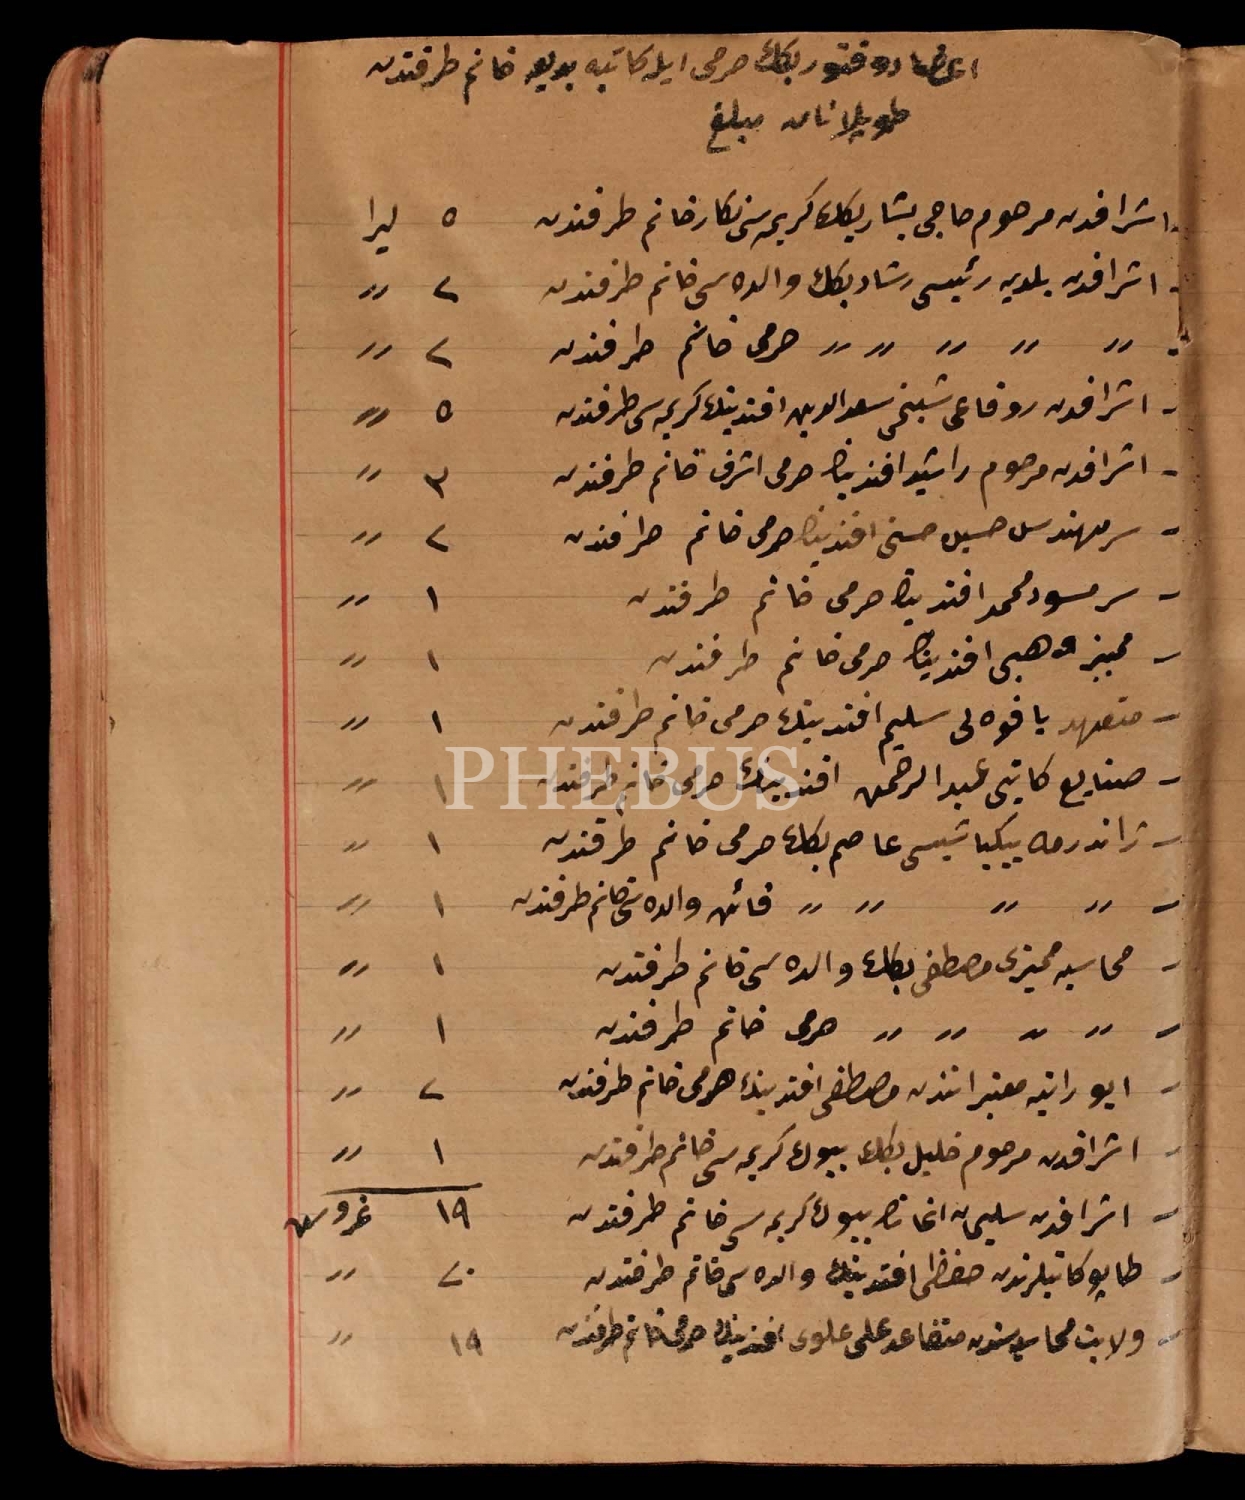 اعضا دوقتور بكك حرمی ایله كاتبه بدیعه خانم طرفندن
طوپلانان مبلغ
- اشرافدن مرحوم حاجی بشار بكك كریمه‌سی نكار خانم طرفندن ٥ لیرا
- اشرافدن بلدیه رئیسی رشاد بكك والده‌سی خانم طرفندن ٢ 〃
- 〃 〃 〃 〃 〃 حرمی خانم طرفندن ٢ 〃
- اشرافدن روفاعی شیخی سعدالدین افندینك كریمه‌سی طرفندن ٥ 〃
- اشرافدن مرحوم راشید افندینك حرمی اشرف خانم طرفندن ٣ 〃
- سرمهندس حسین حسنی افندینك حرمی خانم طرفندن ٢ 〃
- سر مسود محمد افندینك حرمی خانم طرفندن ١ 〃
- ممیز وهبی افندینك حرمی خانم طرفندن ١ 〃
- متعهد یافوه‌لی سلیم افندینك حرمی خانم طرفندن ١ 〃
- صنایع كاتبی عبدالرحمن افندینك حرمی خانم طرفندن ١ 〃
- ژاندرمه بیكباشیسی عاصم بكك حرمی خانم طرفندن ١ 〃
- 〃 〃 〃 〃 〃 قائن والده‌سی خانم طرفندن ١ 〃
- محاسبه ممیزی مصطفی بكك والده‌سی خانم طرفندن ١ 〃
- 〃 〃 〃 〃 〃 حرمی خانم طرفندن ١ 〃
- معتبراتندن مصطفی افندینك حرمی خانم طرفندن ٢ 〃
- اشرافدن مرحوم خلیل بكك بیوك كریمه‌سی خانم طرفندن ١ 〃
- اشرافدن سلیمان اغانك بیوك كریمه‌سی خانم طرفندن ١٩ غروش
- طاپو كاتبلرندن حفظی افندینك والده‌سی خانم طرفندن ٢٠ 〃
- ولایت محاسبه‌سندن متقاعد علی علوی افندینك حرمی خانم طرفندن ١٩ 〃
PHEBUS